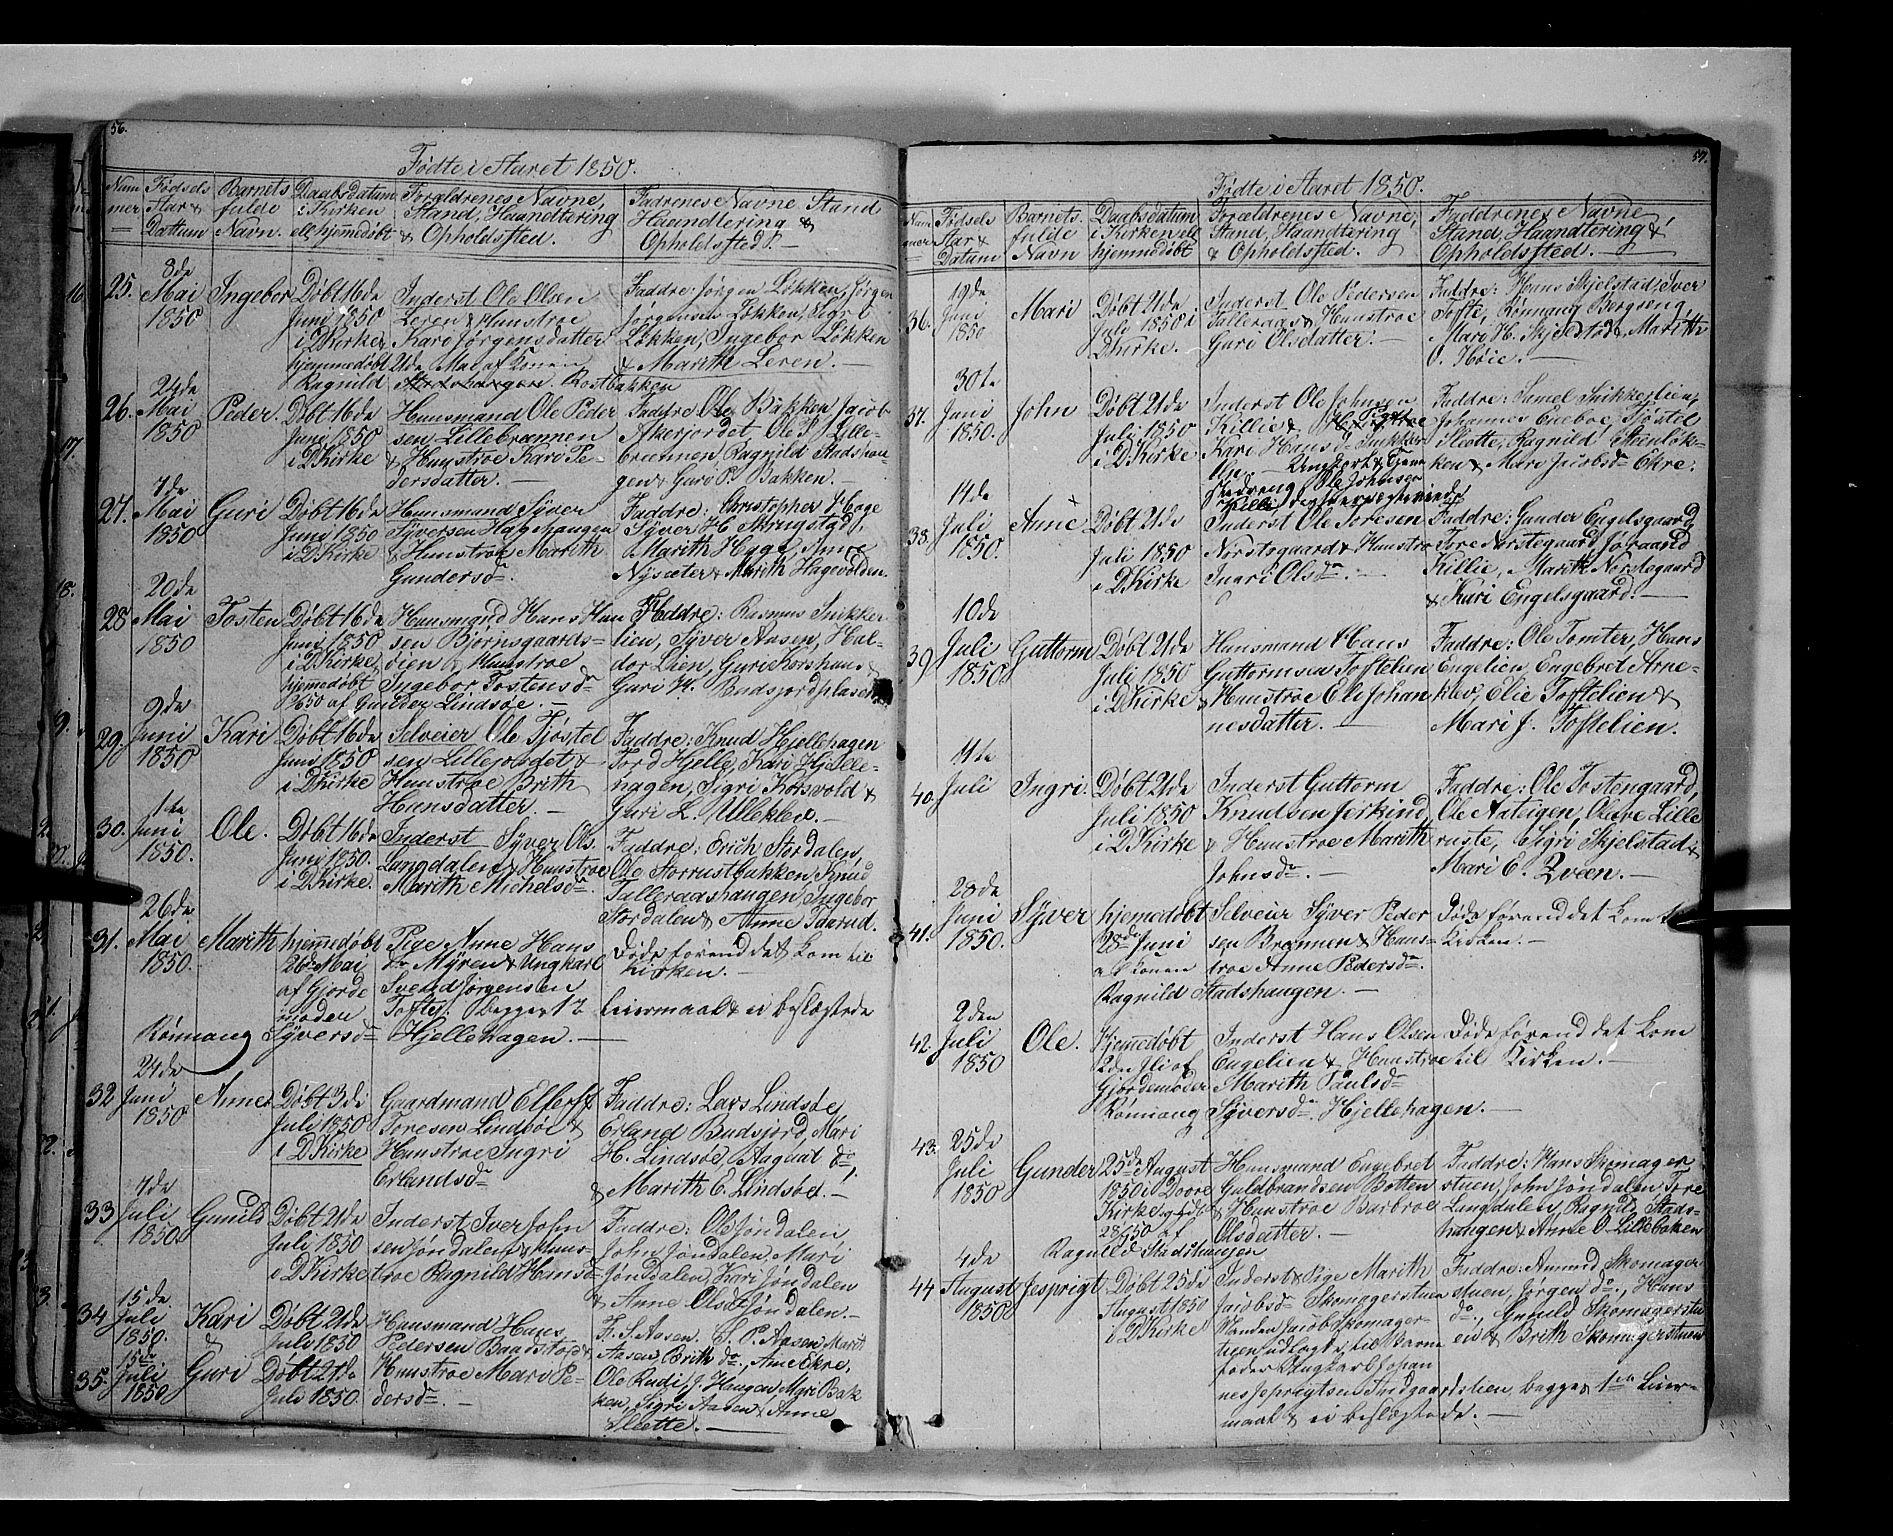 56.
Fødte i Aaret 1850.
Num
mer
Fødsels
Aar &
Dattum
Barnets
fulde
Navn.
Daabsdatum
i Kirken
ell. hjemdøbt
Foraldrenes Navne,
Stand, Haandtering
& Opholdssted.
Fadrenes Navne Stand
Haandtering &
Opholdssted.
25.
8de
Mai
1850
Ingebor
Døbt 16de
Juni 1850
i DKirke
hjemmedøbt 21de Mai af Konen
Ragnild Rostbakken
Inderst Ole Olsen
Leren & Hustroe
Kari Jørgensdatter
Faddre: Jørgen Løkken, Jørgen
Jørgensen Løkken, Sigri
Løkken, Ingebor Løkken
& Marith Leren.
26.
24de
Mai
1850
Peder.
Døbt 16de
Juni 1850
i DKirke
Huusmand Ole Peder
sen Lillebrænnen
& Hustroe Kari Pe-
dersdatter.
Faddre Ole Bakken Jacob
Akerjordet Ole P. Lille-
brænnen, Ragnild Stadshau-
gen & Guro P. Bakken.
27.
7de
Mai
1850
Guri
Døbt 16de
Juni 1850
i DKirke
Huusmand Syver
Syversen Hageshaugen
& Hustroe Marith
Gundersd.
Faddre: Christopher Hage
Syver H.
Marith Hage, Anne
Nysæter & Marith Hagevolden.
28
20de
Mai
1850
Tosten
Døbt 16de
Juni 1850
i DKirke
hjemmedøbt
af Gunder Lindsøe.
Huusmand Hans Han
sen Bjørnsgaards-
lien & Hustroe
Ingebor Tostensd
Faddre: Rasmus Snikker
lien, Syver Aasen, Hal-
dor Lien, Guri Korshaug
Guri H. Budsjordplasen
29.
9de
Juni
1850
Kari
Døbt 16de
Juni 1850
i DKirke
Selveier Ole Tjøstel
sen Lillejordet &
Hustroe Brith
Hansdatter.
Faddre: Knud Hjellehagen
Tord Hjelle, Kari Hjelle-
hagen, Sigri Korsvold &
Guri L. Ullekleo.
30.
1te
Juni
1850.
Ole.
Døbt 16de
Juni 1850.
i DKirke.
Inderst Syver Ols.
Langdalen & Hustroe
Marith Michelsd.
Faddre: Erich Stordalen,
Ole Storrustbakken, Knud
Talleraashaugen, Ingebor
Stordalen & Anne Taarud.
31.
26de
Mai
1850.
Marith
hjemmedøbt
26de Mai
af Gjorde
moden
Rønnaug Syversd Hjellehagen.
Pige Anne Hans
d. Myren & Ungkarl
Svend Jørgensen
Tofte. begges 1te
Døde førend det kom til
Kirken.
leiermaal & ei beslægtede
32
24de
Juni
1850
Anne
Døbt 3de
Juli 1850
i DKirke
Gaardmand Elferff
Toresen Lindsøe &
Hustroe Ingri
Erlandsd
Faddre: Lars Lindsøe,
Erland Budsjord, Mari
H. Lindsøe, Aagaat do
& Marith E. Lindsøe.
33
7de
Juli
1850
Gunild
Døbt 21de
Juli 1850
i DKirke
Inderst Iver John
sen Jøndalen & Huus-
troe Ragnild Hansd
Faddre: Ole Jøndalen,
John Jøndalen, Mari
Jøndalen, Kari Jøndalen
& Anne Olsd Jøndalen.
34
15de.
Juli
1850.
Kari
&
Døbt 21de
Juli 1850
Huusmand Hans
Pedersen Baadstøe &
F: S. Aasen, S. P. Aasen, Marit
Aasen, Brith do, Anne Ekre,
35.
15de
Juli
1850
Guri
Døbt 21de
Juli 1850.
Hustroe Mari Pe-
dersd.
Ole Rudi, J. Haugen, Bak
ken, Sigri Aasen & Anne
Slette.
57.
Fødte i Aaret 1850.
Num
mer
Fødsels
Aar &
Datum
Barnets
fulde
Navn
Daabsdatum
i Kirken ell
hjemmedøbt
Forældrenes Navne,
Stand, Haandtering
& Opholdssted.
Faddrenes Navne
Stand, Haandtering &
Opholdssted.
36.
19de
Juni
1850
Mari
Døbt 21de
Juli 1850 i
DKirke.
Inderst Ole Pedersen
Talleraas & Hustroe
Guri Olsdatter.
Faddre: Hans Skjelstad, Iver
Tofte, Rønnaug Bergseng,
Mari H. Skjelstad & Marith
O. Høie.
37.
30te
Juni
1850.
John
Døbt 21de
Juli 1850
i DKirke
Inderst Ole Johnsen
Killie &
Kari Hansd Snikker
lien.
Ole Johnsen
Faddre: Samel Snikkerlien,
Johannes Eneboe, Tjøstel
Slette, Ragnild Stenløk-
ken & Mari Jacobsd Ekre.
38.
14de
Juli
1850.
Anne
Døbt 21de
Juli 1850
i DKirke
Inderst Ole Toresen
Norstegaard & Hustro
Ingri Olsd.
Faddre: Gunder Engelsgaard
Tore Norstegaard, Joraand
Killie, Marith Norstegaard
& Kari Engelsgaard.
39
10de
Juli
1850
Guttorm
Døbt 21de
Juli 1850
i DKirke
Huusmand Hans
Guttormsen Toftelien
& Hustroe Eli Johan
nesdatter.
Faddre: Ole Tomter, Hans
Engelien, Engebret Arne-
klev, Elie Toftelien &
Mari J. Toftelien.
40.
11te
Juli
Ingri.
Døbt 21de
Juli 1850
i DKirke
Inderst Guttorm
Knudsen Jerkind
& Hustroe Marith
Johnsd.
Faddre: Ole Tostensgaard,
Ole Aateigen, Olene Lille
ruste, Sigri Skjelstad &
Mari E. Qveen.
41.
28de
Juni
1850.
Syver
hjemedøbt
28de Juni
af Konen
Ragnild Stadshaugen.
Selveier Syver Peder
sen Brænnen & Huus-
troe Anne Pedersd.
Døde førend det kom til
Kirken.
42.
2den
Juli
1850
Ole.
hjemedøbt
2den Jli af
Gjordemoder
Rønnaug Syversd. Hjellehagen.
Inderst Hans Olsen
Engelien & Hustroe
Marith Paulsd
Døde førend det kom
til Kirken.
43.
25de
Juli
1850
Gunder
25de August
1850 i Dovre
Kirke
af
Ragnild Stadshaugen
Huusmand Engebret
Guldbrandsen Botten
& Hustroe Barbroe
Olsdatter.
Faddre: Hans Skomager
stuen, John Jøndalen, Tore
Langdalen, Ragnild Stads-
haugen & Anne O. Lillebaken
44
4de
August
1850
Jesprigt
Døbt 25de
August 1850
i DKirke
Inderst & Pige Marith
Jacobsd Skomagerstuen
Manden Jacob Skomager-
stuen udlagt til Barne
fader Ungkarl Johan
nes Jesprigtsen Andgaardslien, begges 1ste Leier-
maal & ei beslægtede.
Faddre: Amund Skomager
stuen, Jørgen do, Hans
do, Gunild Skomagerstu
en & Brith Skomagerstuen